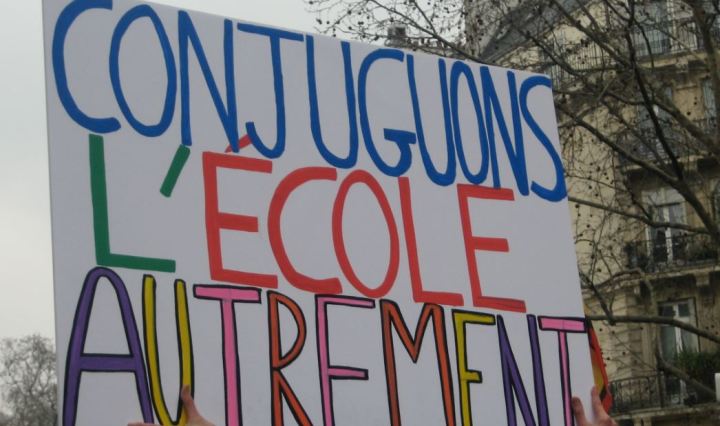 CONJUGUONS
L'ÉCOLE
AUTREMENT